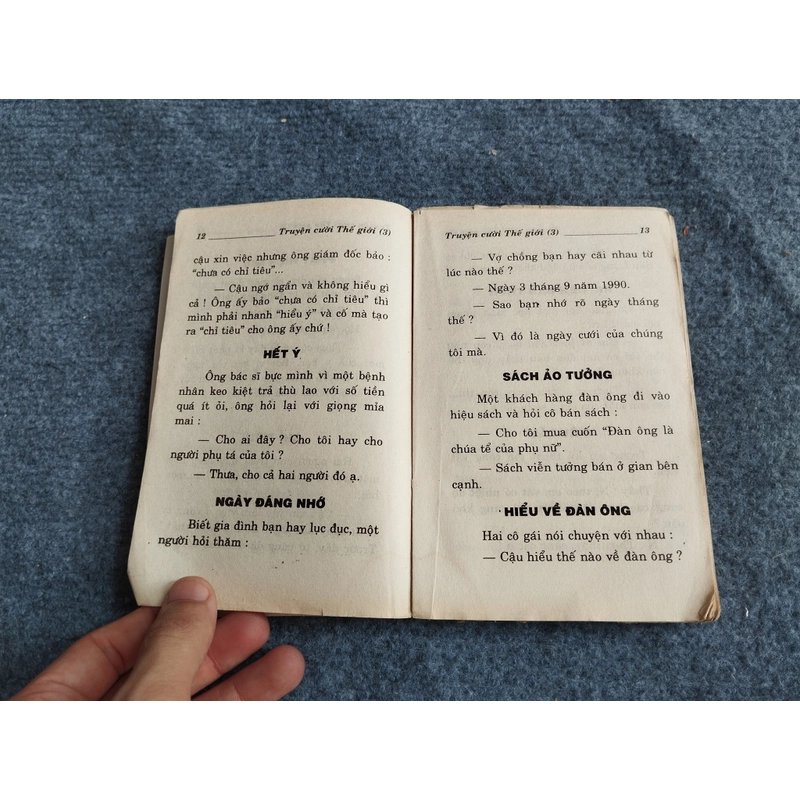 12 Truyện cười Thế giới (3)
cậu xin việc nhưng ông giám đốc bảo :
"chưa có chỉ tiêu"...
— Cậu ngớ ngẩn và không hiểu gì
cả ! Ông ấy bảo "chưa có chỉ tiêu" thì
mình phải nhanh "hiểu ý" và cố mà tạo
ra "chỉ tiêu" cho ông ấy chứ !
HẾT Ý
Ông bác sĩ bực mình vì một bệnh
nhân keo kiệt trả thù lao với số tiền
quá ít ỏi, ông hỏi lại với giọng mỉa
mai :
— Cho ai đây ? Cho tôi hay cho
người phụ tá của tôi ?
— Thưa, cho cả hai người đó ạ.
NGÀY ĐÁNG NHỚ
Biết gia đình bạn hay lục đục, một
người hỏi thăm :
Truyện cười Thế giới (3) 13
— Vợ chồng bạn hay cãi nhau từ
lúc nào thế ?
— Ngày 3 tháng 9 năm 1990.
— Sao bạn nhớ rõ ngày tháng
thế ?
— Vì đó là ngày cưới của chúng
tôi mà.
SÁCH ẢO TƯỞNG
Một khách hàng đàn ông đi vào
hiệu sách và hỏi cô bán sách :
— Cho tôi mua cuốn "Đàn ông là
chúa tể của phụ nữ".
— Sách viễn tưởng bán ở gian bên
cạnh.
HIỂU VỀ ĐÀN ÔNG
Hai cô gái nói chuyện với nhau :
— Cậu hiểu thế nào về đàn ông ?